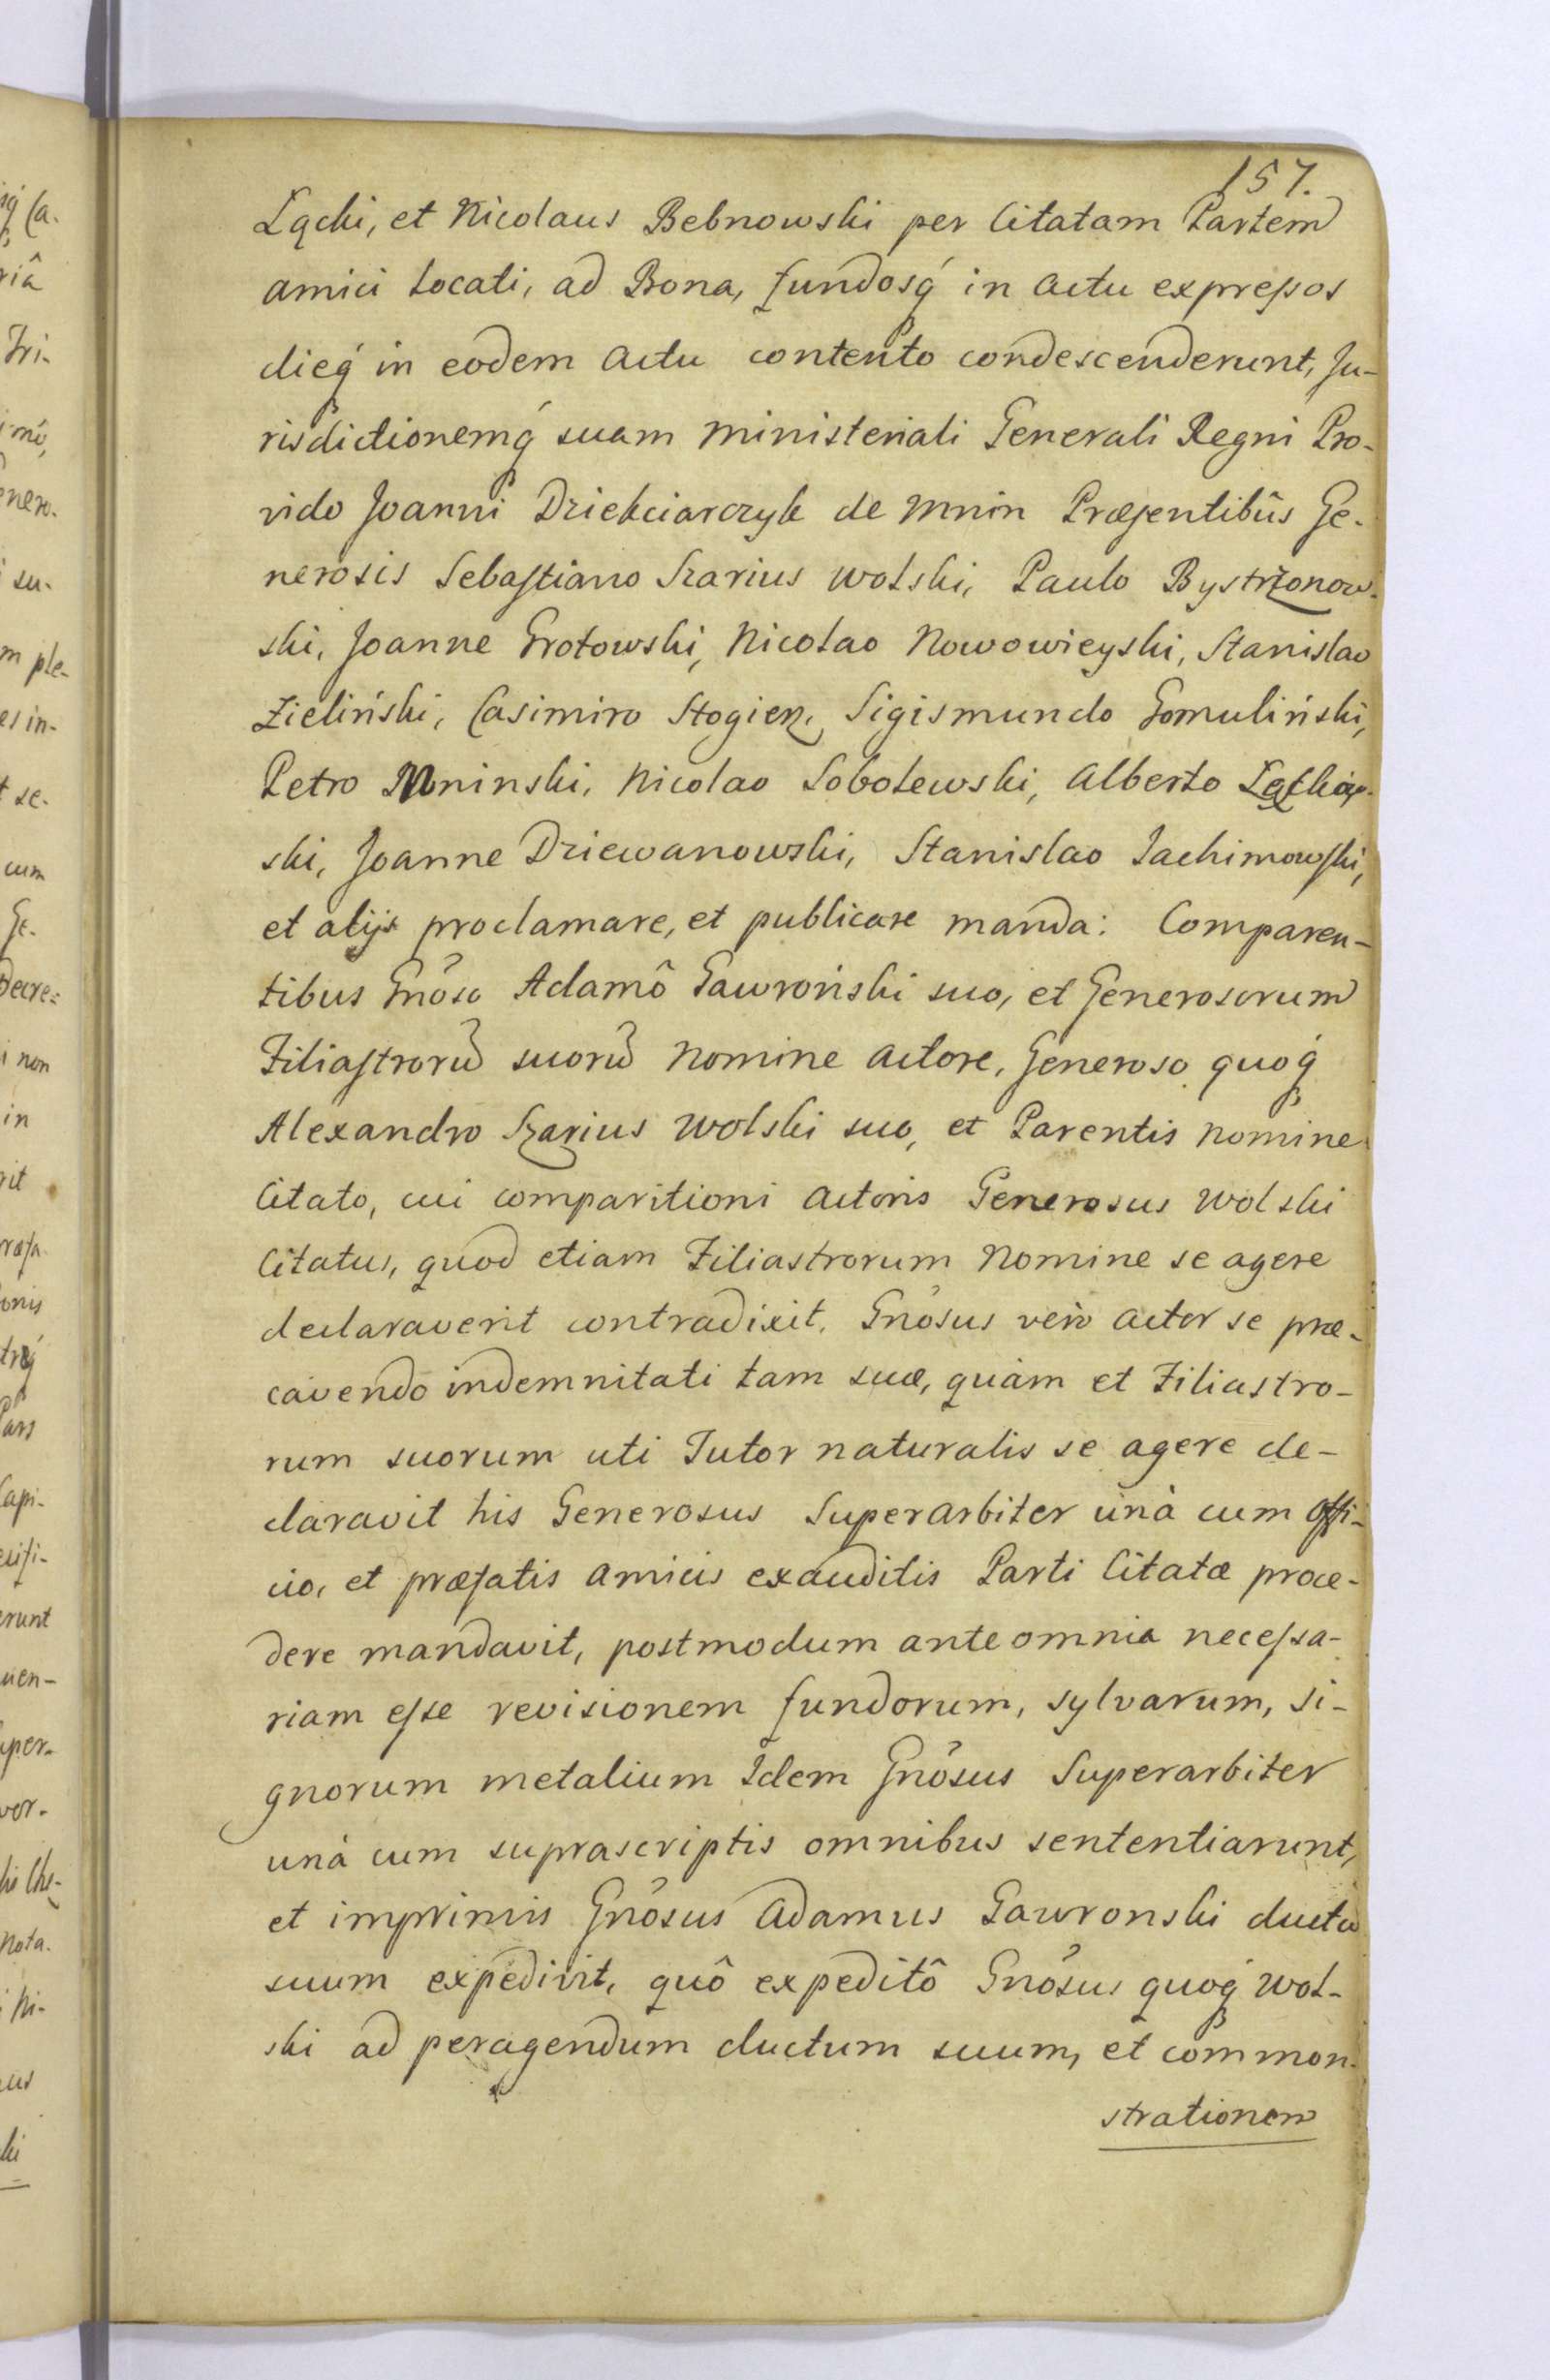 157.
Łącki, et Nicolaus Bebnowski per Citatam Partem
amici locati, ad Bona, fundosq́ in actu expressos
dieq́ in eodem actu contento condescenderunt, Ju-
risdictionemq́ suam ministeriali Generali Regni Pro-
vido Joanni Dziekciarczyk de Mnin Præsentibûs Ge-
nerosis Sebastiano Szarius Wolski, Paulo Bystrzonow-
ski, Joanne Grotowski, Nicolao Nowowieyski, Stanislao
Zieliński, Casimiro Stogien, Sigismundo Gomuliński,
Petro Mninski, Nicolao Sobolewski, Alberto
ski, Joanne Dziewanowski, Stanislao Jachimowski,
et alijs proclamare, et publicare manda: Comparen-
tibus Gnõso Adamô Gawroński suo, et Generosorum
Filiastrorũ suorũ nomine actore, Generoso quoq́
Alexandro Szarius Wolski suo, et Parentis nomine
Citato, cui comparitioni actoris Generosus Wolski
Citatus, quod etiam Filiastrorum nomine se agere
declaraverit contradixit. Gnõsus verò actor se præ-
cavendo indemnitati tam suæ, quàm et Filiastro-
rum suorum uti Tutor naturalis se agere de-
claravit his Generosus Superarbiter unà cum Offi-
cio, et præfatis amicis exauditis Parti Citatæ proce-
dere mandavit, postmodum ante omnia necessa-
riam esse revisionem fundorum, sylvarum, si-
gnorum metalium Idem Gnõsus Superarbiter
unà cum suprascriptis omnibus sententiarunt,
et imprimis Gnõsus Adamus Gawronski ductũ
suum expedivit, quô expeditô Gnõsus quoq́ Wol-
ski ad peragendum ductum suum, et common-
strationem